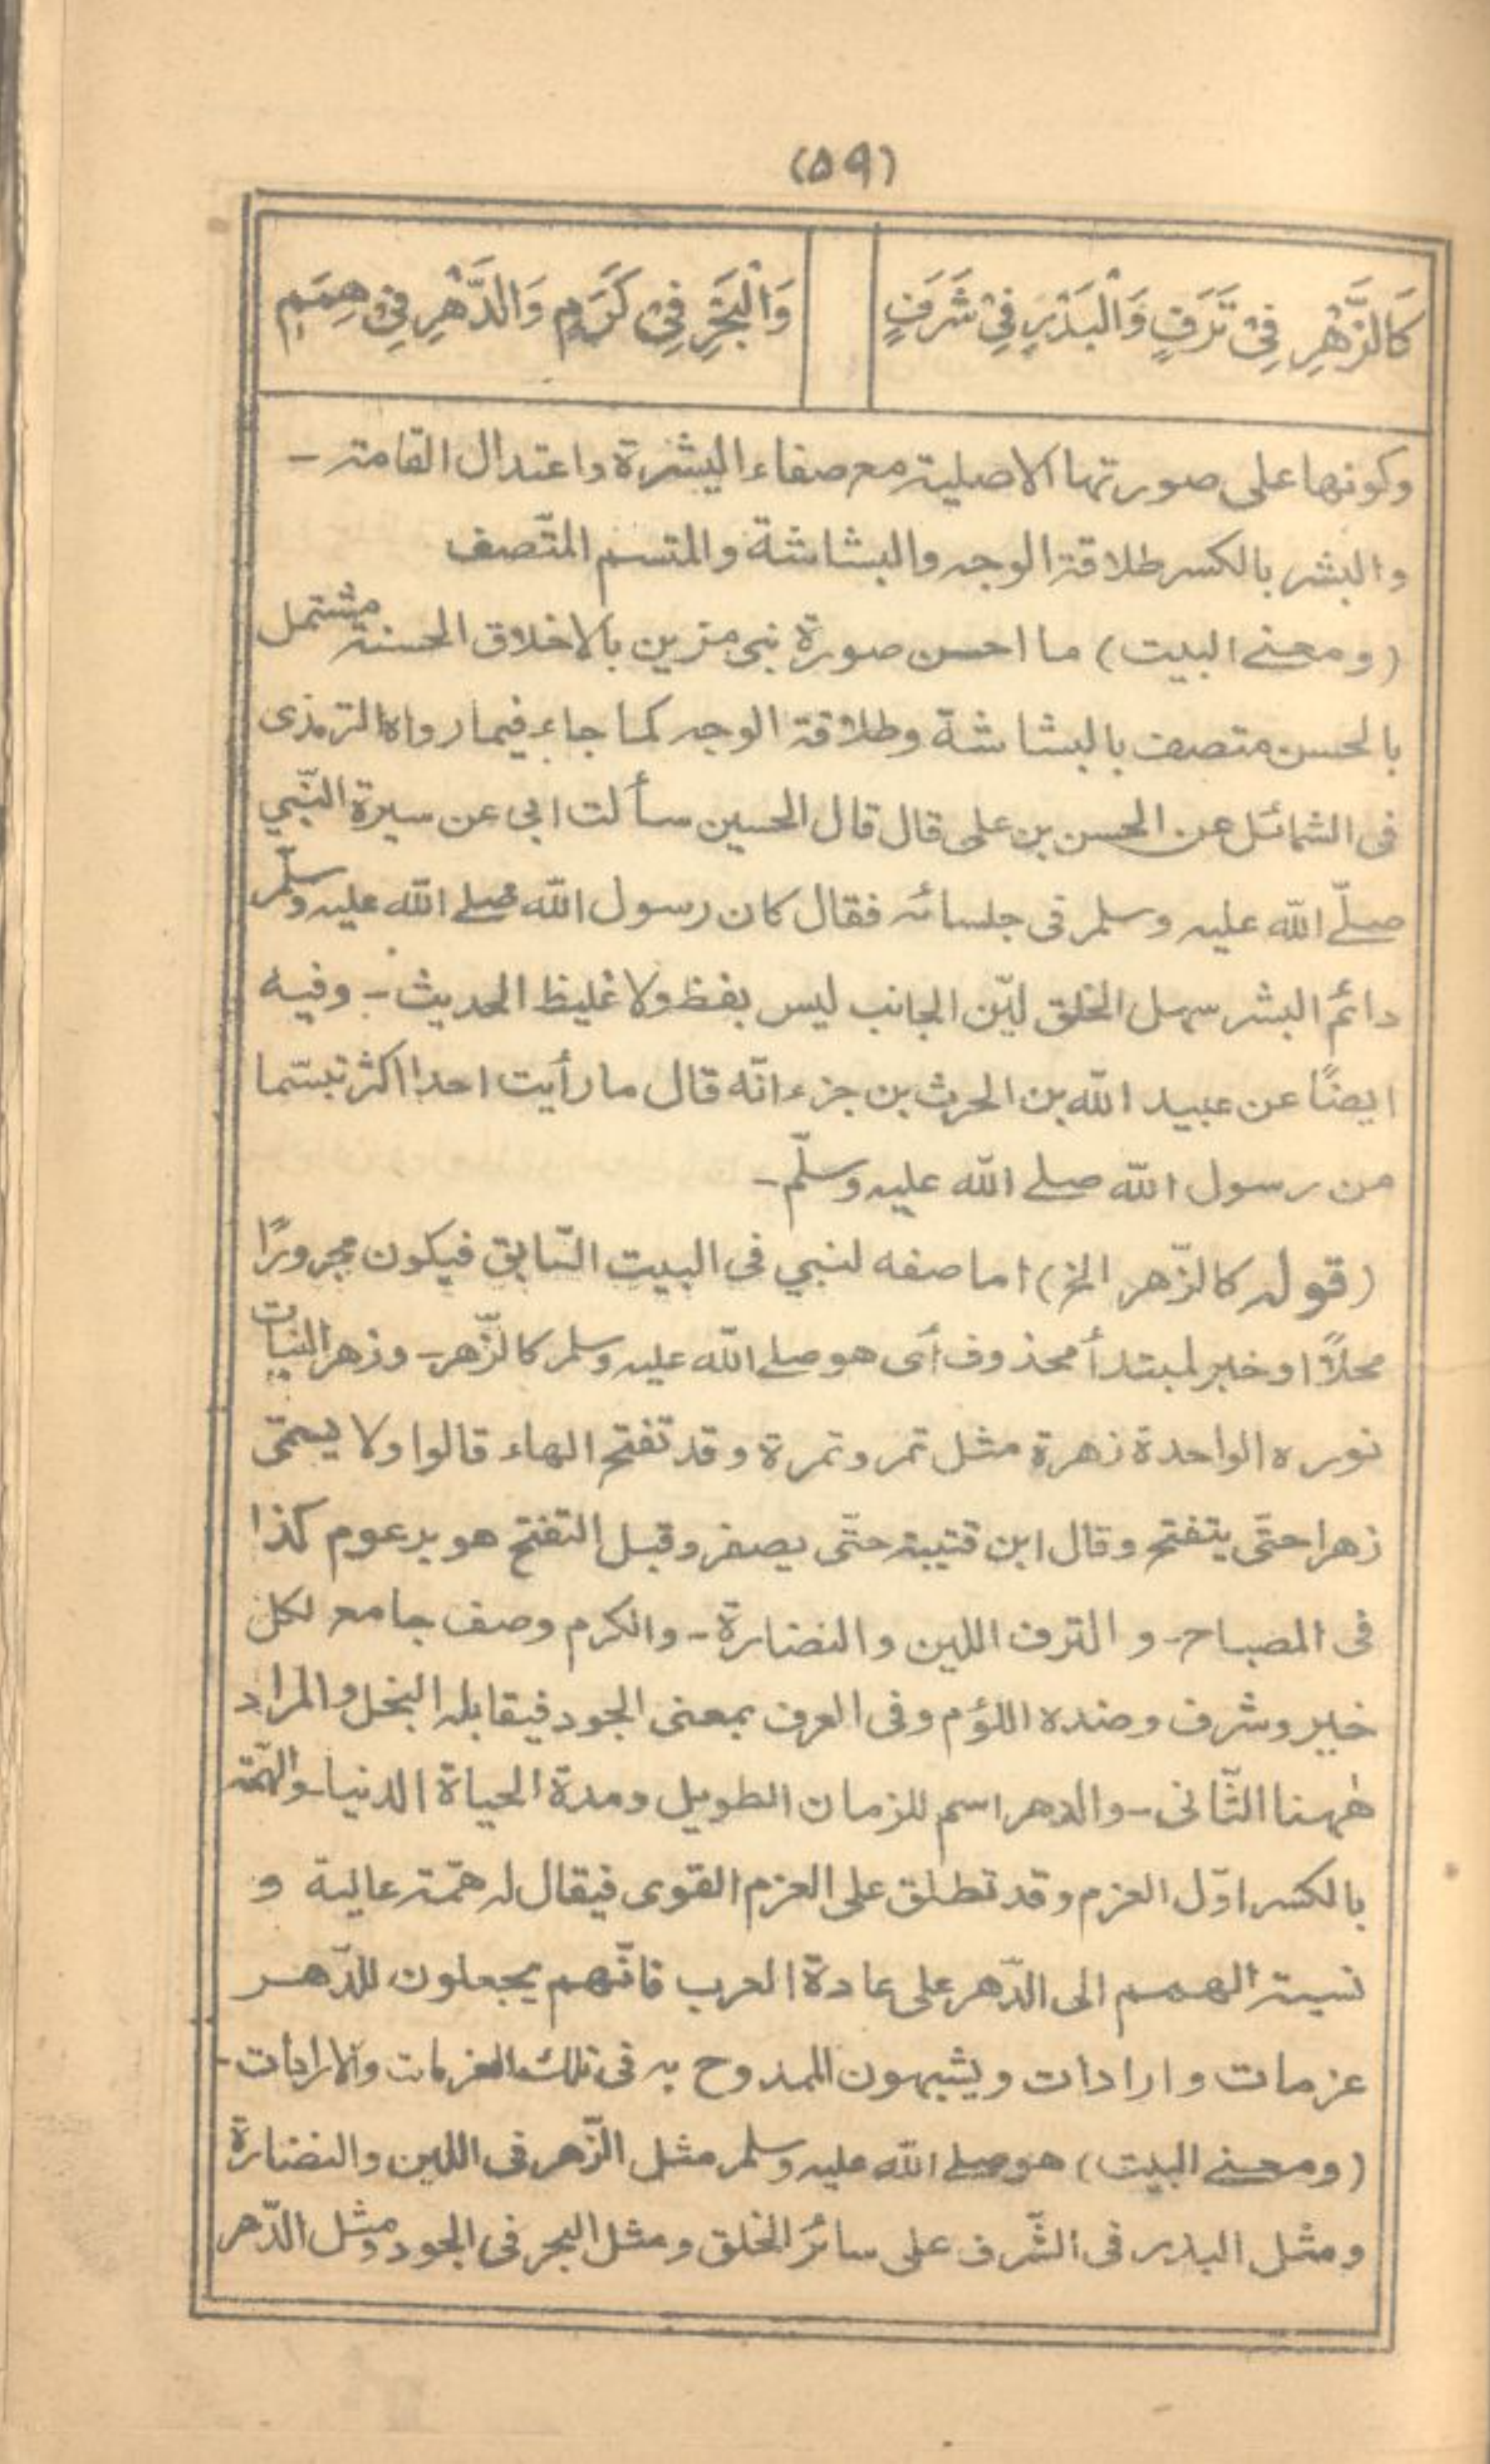 (۵۹)
كَالزَّهْرِ فِيْ تَرَفٍ وَالْبَدْرِ فِيْ شَرَفٍ وَالْبَحْرِ فِيْ كَرَمٍ وَالدَّهْرِ فِيْ هِمَمٖ
وكونها على صورتها الاصلية مع صفاء البشرة واعتدال القامة -
والبشر بالكسر طلاقة الوجه والبشاشة والمتسم المتّصف
(ومعنے البيت) ما احسن صورة نبى مزين بالاخلاق الحسنة مشتمل
بالحسن متصف بالبشاشة وطلاقة الوجه كما جاء فيما رواه الترمذى
فى الشمائل عن الحسن بن على قال قال الحسين سألت ابى عن سيرة النّبي
صلّے الله عليه وسلم فى جلسائه فقال كان رسول الله صلے الله عليه وسلّم
دائم البشر سهل الخلق ليّن الجانب ليس بفظ ولا غليظ الحديث - وفيه
ايضًا عن عبيد الله بن الحرث بن جزء انّه قال ما رأيت احدا اكثر تبسّما
من رسول الله صلے الله عليه وسلّم -
(قوله كالزّهر الخ) اما صفه لنبي فى البيت السّابق فيكون مجرورًا
محلاً او خبر لمبتدأ محذوف أى هو صلے الله عليه وسلم كالزّهر - وزهر النبات
نوره الواحدة زهرة مثل تمر وتمرة وقد تفتح الهاء قالوا ولا يسمّى
زهرا حتّى يتفتح وقال ابن قتيبة حتّى يصفر وقبل التفتح هو برعوم كذا
فى المصباح - و الترف اللين والنضارة - والكرم وصف جامع لكل
خير وشرف وضده اللؤم وفى العرف بمعنى الجود فيقابله البخل والمراد
هٰهنا الثّانى - والدهر اسم للزمان الطويل ومدة الحياة الدنيا - والهمّة
بالكسر اوّل العزم وقد تطلق على العزم القوى فيقال له همّة عالية و
نسبة الهمم الى الدّهر على عادة العرب فانّهم يجعلون للدّهر
عزمات وارادات ويشبهون الممدوح به فى تلك العزمات والارادات -
(ومعنے البيت) هو صلے الله عليه وسلم مثل الزّهر فى اللين والنضارة
ومثل البدر فى الشّرف على سائر الخلق ومثل البحر فى الجود ومثل الدّهر